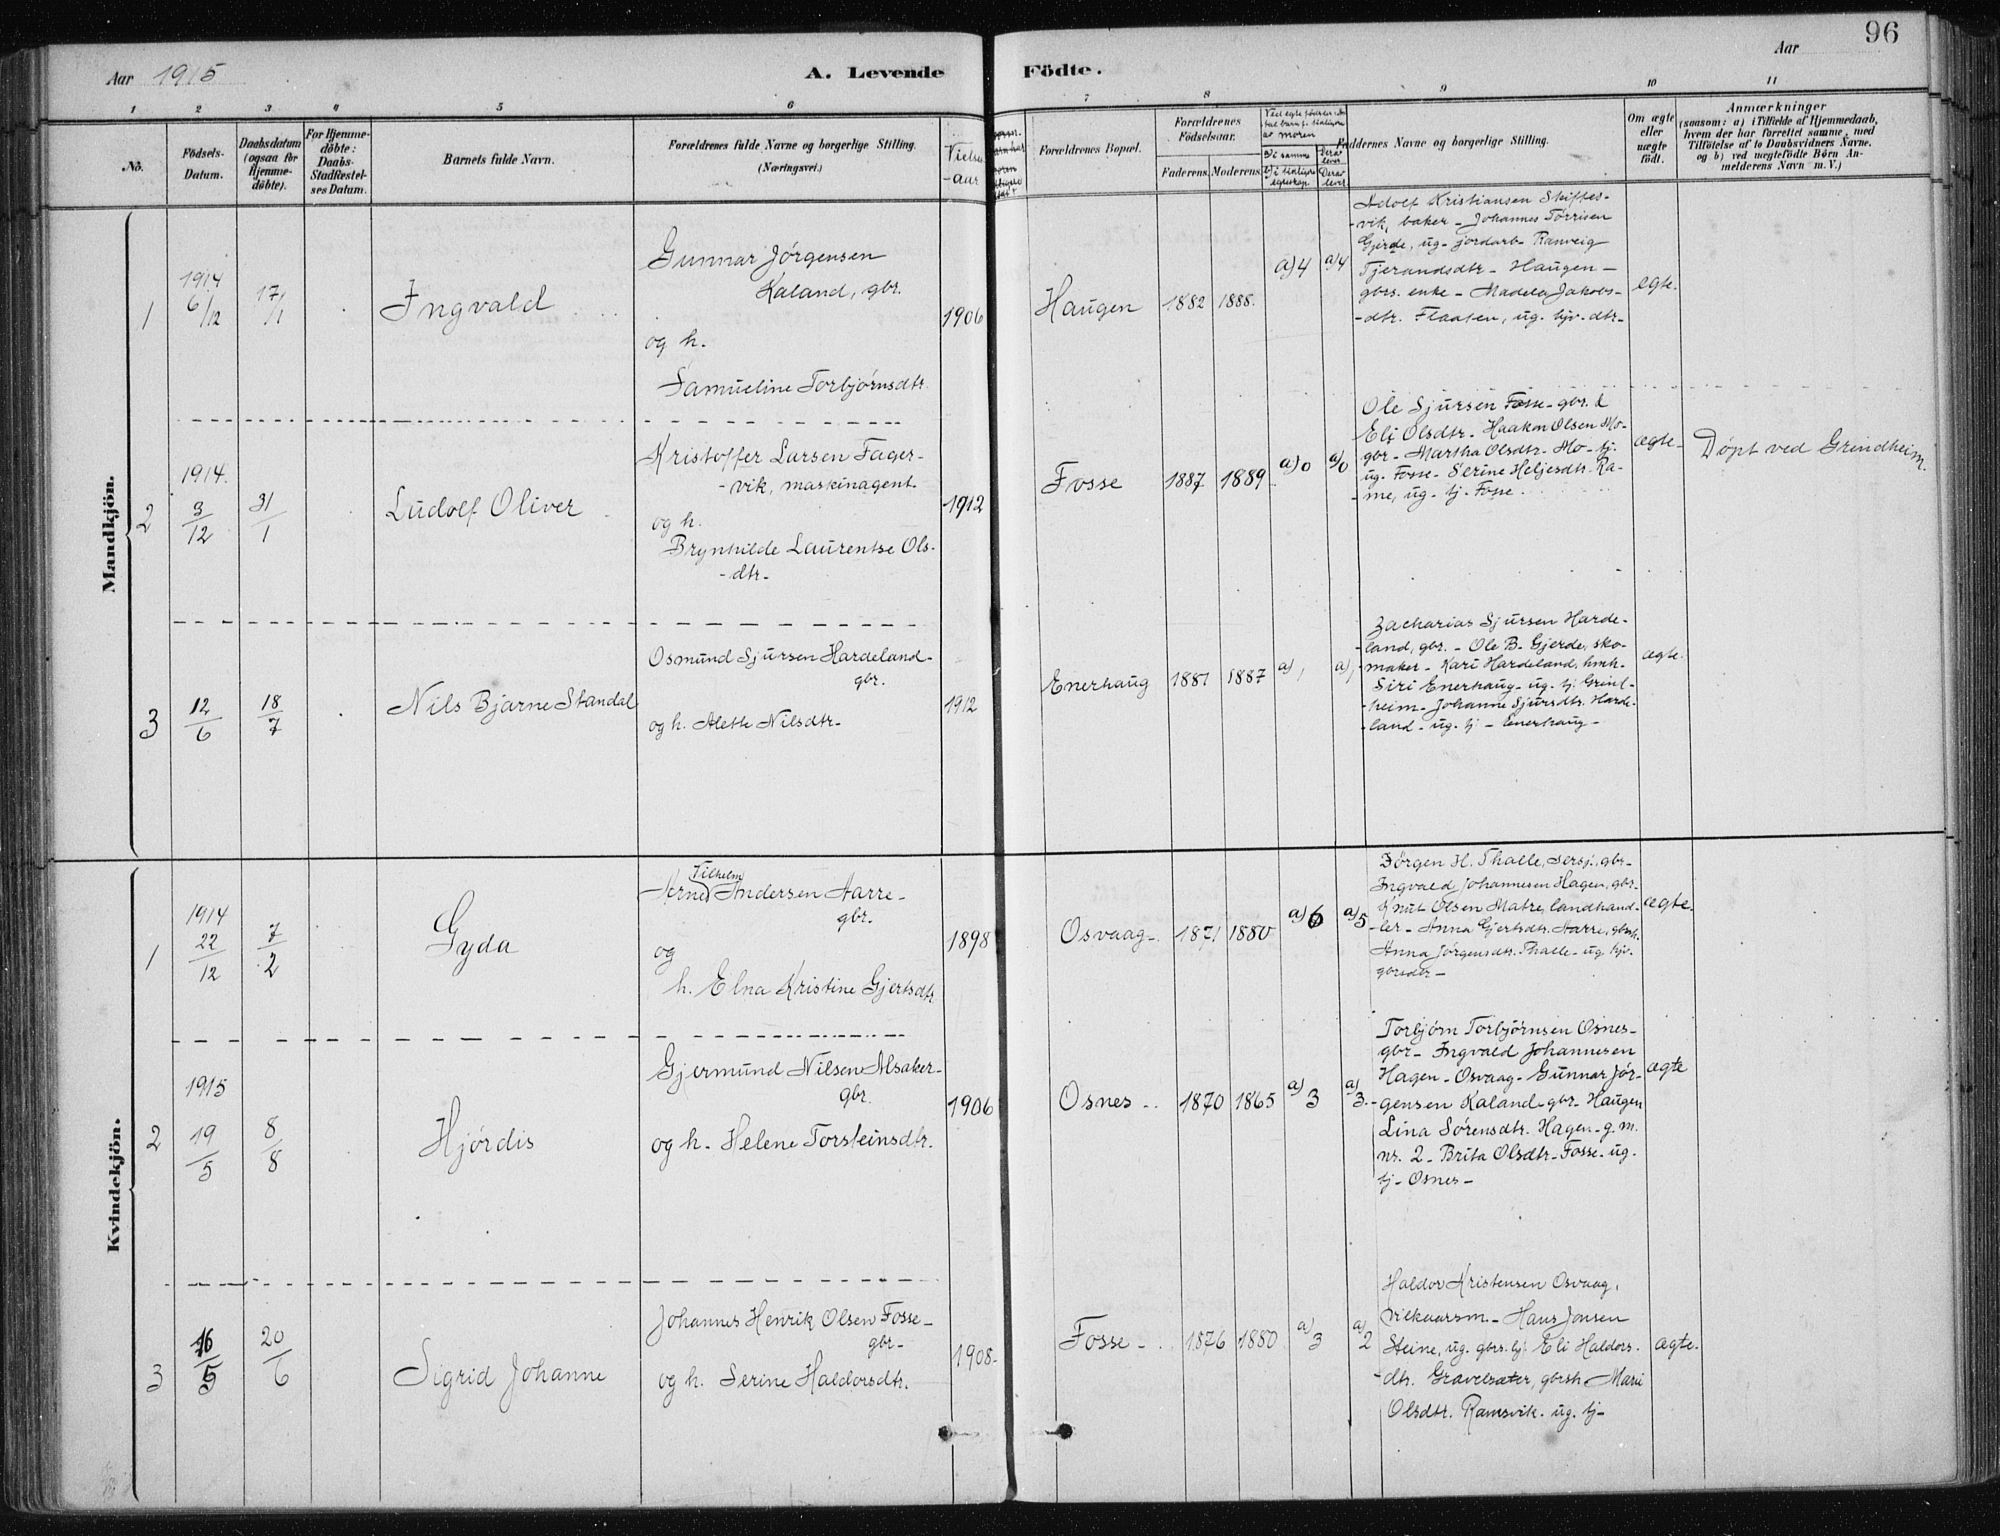 96
Aar 1915
A. Levende
Födte.
Aar
1
2
3
4
5
6
7
8
9
10
11
No.
Födsels-
Datum.
Daabsdatum
(ogsaa for
Hjemme-
döbte).
For Hjemme-
döbte:
Daabs-
Stadfæstel-
ses Datum.
Barnets fulde Navn.
Forældrenes fulde Navne og borgerlige Stilling.
(Næringsvei.)
Vielses
-aar
Forældrenes Bopæl.
Forældrenes
Födselsaar.
Faderens.
Moderens.
av moren
a) i samme
Derav
lever
Derav
lever
Faddernes Navne og borgerlige Stilling.
Om ægte
eller
uægte
födt.
Anmærkninger
(saasom: a) i Tilfælde af Hjemmedaab,
hvem der har forrettet samme, med
Tilföielse af to Daabsvidners Navne.
og b) ved uægtefödte Börn An-
melderens Navn m. V.)
Mandkjön.
1
1914
6/12
17/1
Ingvald
Gunnar Jørgensen
Kaland, gbr.
og h.
Samueline Torbjørnsdtr.
1906
Haugen
1882
1888.
a) 4
a) 4
Adolf Kristiansen Skiftes-
-vik, baker - Johannes Tørrisen
Gjerde, ug. jordarb. Ranveig
Tjerandsdtr - Haugen -
gbrs. enke - Madela Jakobs-
-dtr. Flaaten, ug. hjv. dtr.
egte.
2
1914.
3/12
31/1
Ludolf Oliver
Kristoffer Larsen Fager-
-vik, maskinagent.
og h.
Brynhilde Laurentse Ols-
-dtr-
1912
Fosse
1887
1889
a) 0
a) 0
Ole Sjursen Fosse - gbr. &
Eli Olsdtr. Haakon Olsen Mo-
gbr - Martha Olsdtr. Mo - tj.
ug. Fosse - Serine Heljesdtr. Ra-
-me, ug. tj. Fosse.
ægte-
Døpt ved Grindheim.
3
12/6
18/7
Nils Bjarne Standal
Osmund Sjursen Hardeland-
gbr.
og h. Alette Nilsdtr-
1912
Enerhaug
1881
1887
a) 1
a) 1
Zacharias Sjursen Harde-
-land, gbr. - Ole B. Gjerde, sko-
-maker - Kari Hardeland, hmh.
Siri Enerhaug - ug. tj. Grind-
-heim - Johanne Sjursdtr. Harde-
-land - ug. tj - Enerhaug -
ægte.
Kvindekjön.
1
1914
22/12
7/2
Gyda
Vilhelm
Arne Andersen Aarre-
gbr.
og
h. Elna Kristine Gjertsdtr.
1898
Osvaag-
1871
1880
a) 6
a) 5
Jørgen H. Thalle, sersj., gbr-
Ingvald Johannesen Hagen, gbr.
Knut Olsen Matre, landhand-
-ler - Anna Gjertsdtr. Aarre, gbrsh.
Anna Jørgensdtr. Thalle - ug. hjv.
gbrsdtr -
ægte.
2
1915
19/5
8/8
Hjørdis
Gjermund Nilsen Alsaker-
gbr.
og h. Helene Torsteinsdtr.
1906
Osnes
1870
1865
a) 3
a) 3.
Torbjørn Torbjørnsen Osnes-
gbr - Ingvald Johannesen
Hagen - Osvaag - Gunnar Jør-
gensen Kaland - gbr - Haugen
Lina Sørensdtr. Hagen - g. m.
nr. 2 - Brita Olsdtr - Fosse - ug.
tj - Osnes -
ægte
3
16/5
20/6
Sigrid Johanne
Johannes Henrik Olsen Fosse-
gbr-
og h. Serine Haldorsdtr.
1908-
Fosse -
1876
1880
a) 3
a) 2
Haldor Kristensen Osvaag,
vilkaarsm. - Hans Jonsen
Steine, ug. gbrs. tj. Eli Haldors-
-dtr. Gravelsæter, gbrsh Mari
Olsdtr. Ramsvik. ug. tj-
ægte.